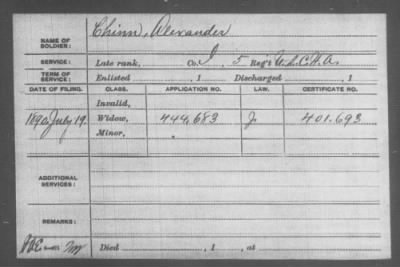 NAME OF SOLDIER: Chinn, Alexander
SERVICE: Late rank, Co. I, 5 Reg't U.S.C.H.A.
TERM OF SERVICE: Enlisted , 1 Discharged , 1
DATE OF FILING. CLASS. APPLICATION NO. LAW. CERTIFICATE NO.
Invalid,
1890, July 19. Widow, 444,683 J 401.693
Minor,
ADDITIONAL SERVICES:
REMARKS:
Died , 1 , at